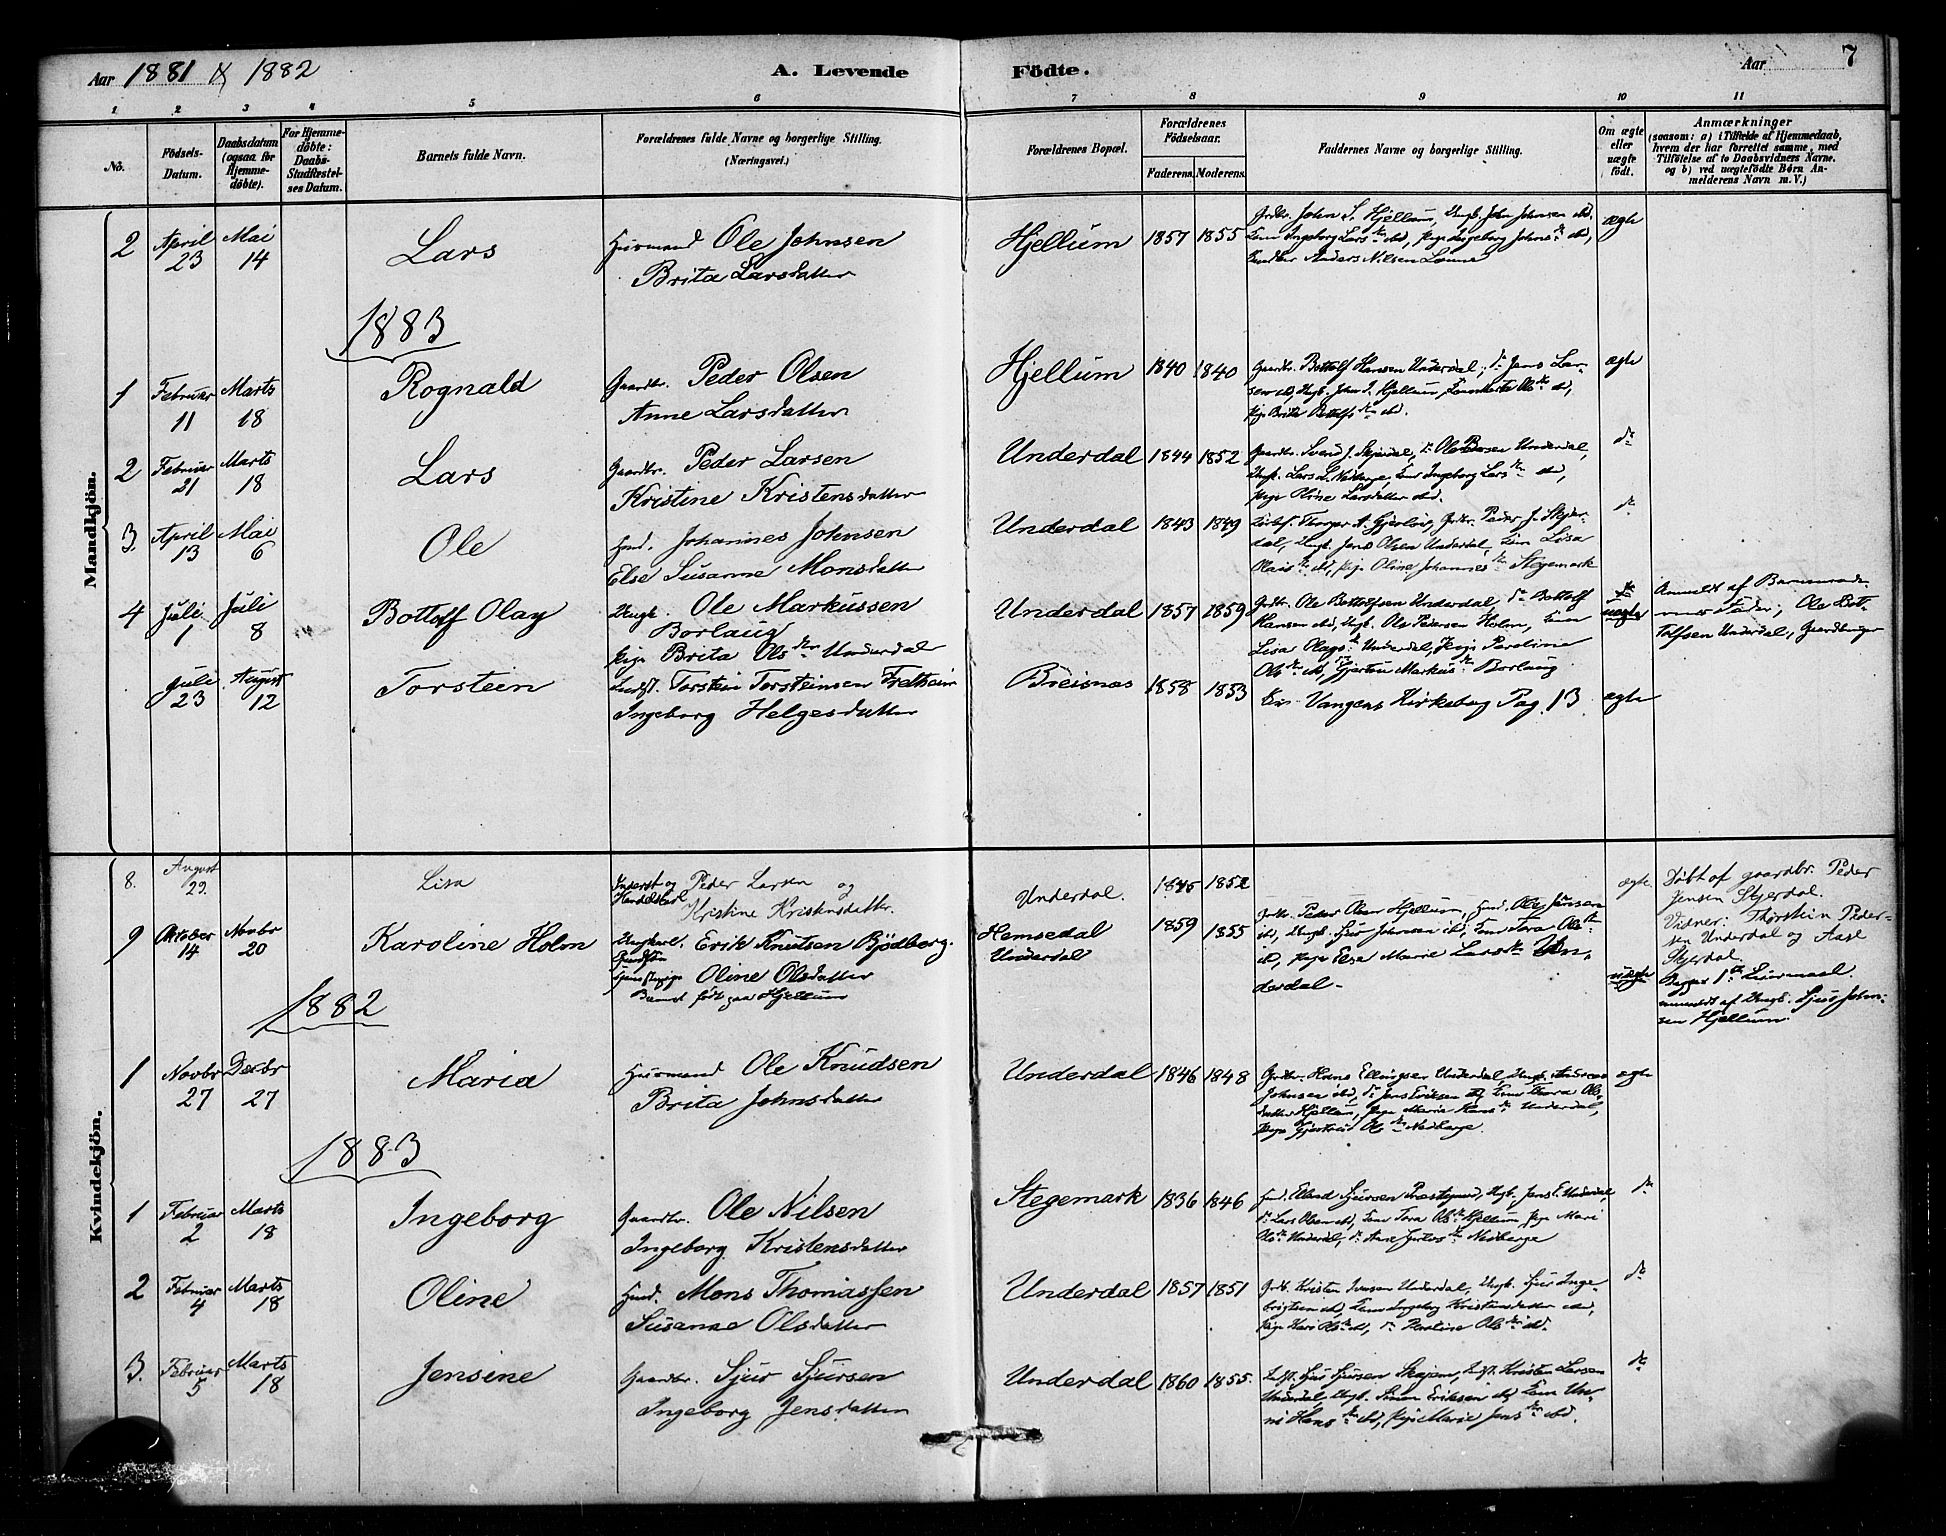 Aar 1881 & 1882
A. Levende
Födte.
Aar
7
1. 2 3 4 5 6 7 8 9 10 11
No.
Födsels-
Datum.
Daabsdatum
(ogsaa for
Hjemme-
döbte).
For Hjemme-
döbte:
Daabs-
Stadfæstel-
ses Datum.
Barnets fulde Navn.
Forældrenes fulde Navne og borgerlige Stilling.
(Næringsvei.)
Forældrenes Bopæl.
Forældrenes
Födselsaar.
Faderens. Moderens.
Faddernes Navne og borgerlige Stilling.
Om ægte
eller
uægte
født.
Anmærkninger
(saasom: a) i Tilfælde af Hjemmedaab,
hvem der har forrettet samme, med
Tilföielse af to Daabsvidners Navne.
og b) ved uægtefödte Börn An-
melderens Navn m. V.)
Mandkjön.
2 April 23 Mai 14 Lars
Husmand Ole Johnsen
Brita Larsdatter
Hjellum 1857 1855
Grdbr. John S. Hjellum, Ungk. John Johnsen ibd.
Kone Ingeborg Larsdtr ibd, Pige Ingeborg Johnsdtr ibd,
Anders Nilsen
ægte
1883
1 Februar 11 Marts 18 Rognald
Gaardbr. Peder Olsen
Anne Larsdatter
Hjellum 1840 1840
Gaardbr. Bottolf Hansen Underdal, do Jens Lar-
sen ibd, Ungk. John J. Hjellum, Kone Olsdtr ibd,
Pige Brita Bottolfsdtr ibd.
ægte
2 Februar 21 Marts 18 Lars
Gaardbr. Peder Larsen
Kristine Kristensdatter
Underdal 1844 1852
Gaardbr. Svend J. Skjerdal, do Ole Underdal,
Ungk. Lars L. Nedberge, Kone Ingeborg Larsdtr ibd,
Pige Oline Larsdatter ibd.
do
3. April 13 Mai 6 Ole
Hmd. Johannes Johnsen
Else Susanne Monsdatter
Underdal 1843 1849
A. Gjerløv, Grdbr. Peder J. Skjer-
dal, Ungk. Jens Olsen Underdal, Kone Lisa
ibd, Pige Oline Johannesdtr Stegemark
do
4 Juli 1 Juli 8 Bottolf Olay
Ungk. Ole Markussen
Borlaug
Pige Brita Olsdtr Underdal
Underdal 1857 1859
Grdbr. Ole Bottolfsen Underdal, do Bottolf
Hansen ibd, Ungk. Ole Pedersen Holm, Kone
Lisa Olagsdtr Underdal, Pige Karolina
Olsdtr ibd, Markusdtr Borlaug
uægte
Anmeldt af Barnemode-
rens Fader, Ole Bot-
tolfsen Underdal, Gaardbruger
Juli 23 August 12 Torstein
Torstein Torsteinsen Fretheim
Ingeborg Helgesdatter
Breisnæs 1858 1853
Vangens Kirkebog Pag. 13
ægte
Kvindekjön.
8. August 29. Lisa
Inderst og
Handelskarl Peder Larsen og
Kristine Kristensdatter.
Underdal. 1845 1852
ægte
Døbt af gaardbr. Peder
Jensen Skjerdal.
Vidner: Thorstein Peder-
sen Underdal og Aase
Skjerdal.
9 Oktober 14 Novbr 20 Karoline Holm
Ungkarl. Erik Knutsen Bjödberg.
Oline Olsdatter
Barnet født paa Hjellum
Hemsedal
Underdal
1859 1855
Grdbr. Peder Olsen Hjellum, Hmd. Ole Jensen
ibd, Ungk. Sjur Johnsen ibd, Kone Tora Ols-
ibd, Pige Else Marie Larsdtr Un-
derdal.
uægte
Begges 1ste Leiermaal.
anmeldt af Ungk. Sjur John-
sen Hjellum.
1882
1 Novbr 27 Decbr 27 Maria
Husmand Ole Knudsen
Brita Johnsdatter
Underdal 1846 1848
Grdbr. Hans Ellingsen Underdal, Ungk.
Johnsen ibd, do Jens Eriksen ibd, Kone Thora Ols-
datter Hjellum, Pige Marie Hansdtr Underdal,
Pige Gjertrud Olsdtr Nedberge.
ægte
1883
1 Februar 2 Marts 18 Ingeborg
Gaardbr. Ole Nilsen
Ingeborg Kristensdatter
Stegemark 1836 1846
Hmd. Elland Sjursen, Ungk. Jens E. Underdal,
do Lars Olsen ibd, Kone Tora Olsdtr Hjellum, Pige Mari
Olsdtr Underdal, do Nedberge
do
2 Februar 4 Marts 18 Oline
Hmd. Mons Thomassen
Susanne Olsdatter
Underdal 1857 1851
Grdb. Kristen Iversen Underdal, Ungk. Sjur Inge-
brigtsen ibd, Kone Ingeborg Kristensdatter ibd,
Pige Kari Olsdtr ibd, do Karoline Olsdtr ibd.
do
3. Februar 5 Marts 18 Jensine
Gaardbr. Sjur Sjursen
Ingeborg Jensdatter
Underdal 1860 1855.
Sjur Sjursen, Kristen Larsen
Underdal, Ungk. Simon Eriksen ibd, Kone Un-
ni Hansdtr ibd, Pige Marie Jensdtr ibd.
do